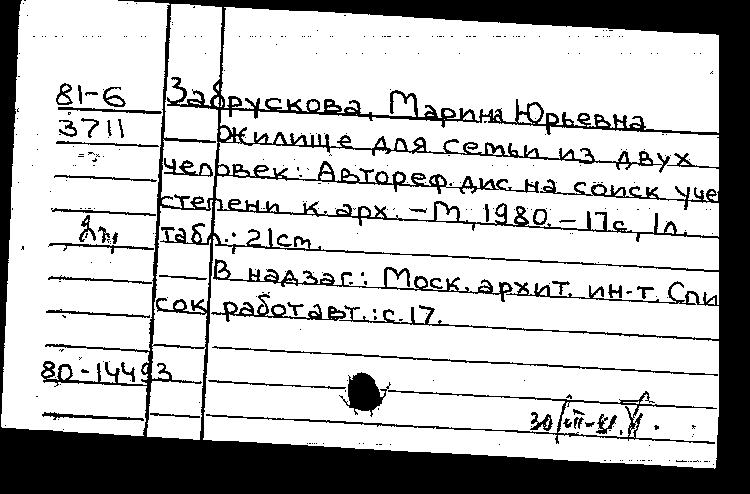 81-6 Забрускова, Марина Юрьевна
3711 Жилище для семьи из двух
человек: Автореф. дис. на соиск уче
степени к. арх. - М, 1980. - 17с, 1л.
табл.; 21cm.
В надзаг.: Моск. архит. ин-т. Спи
сок работ авт.: с. 17.
80-14493